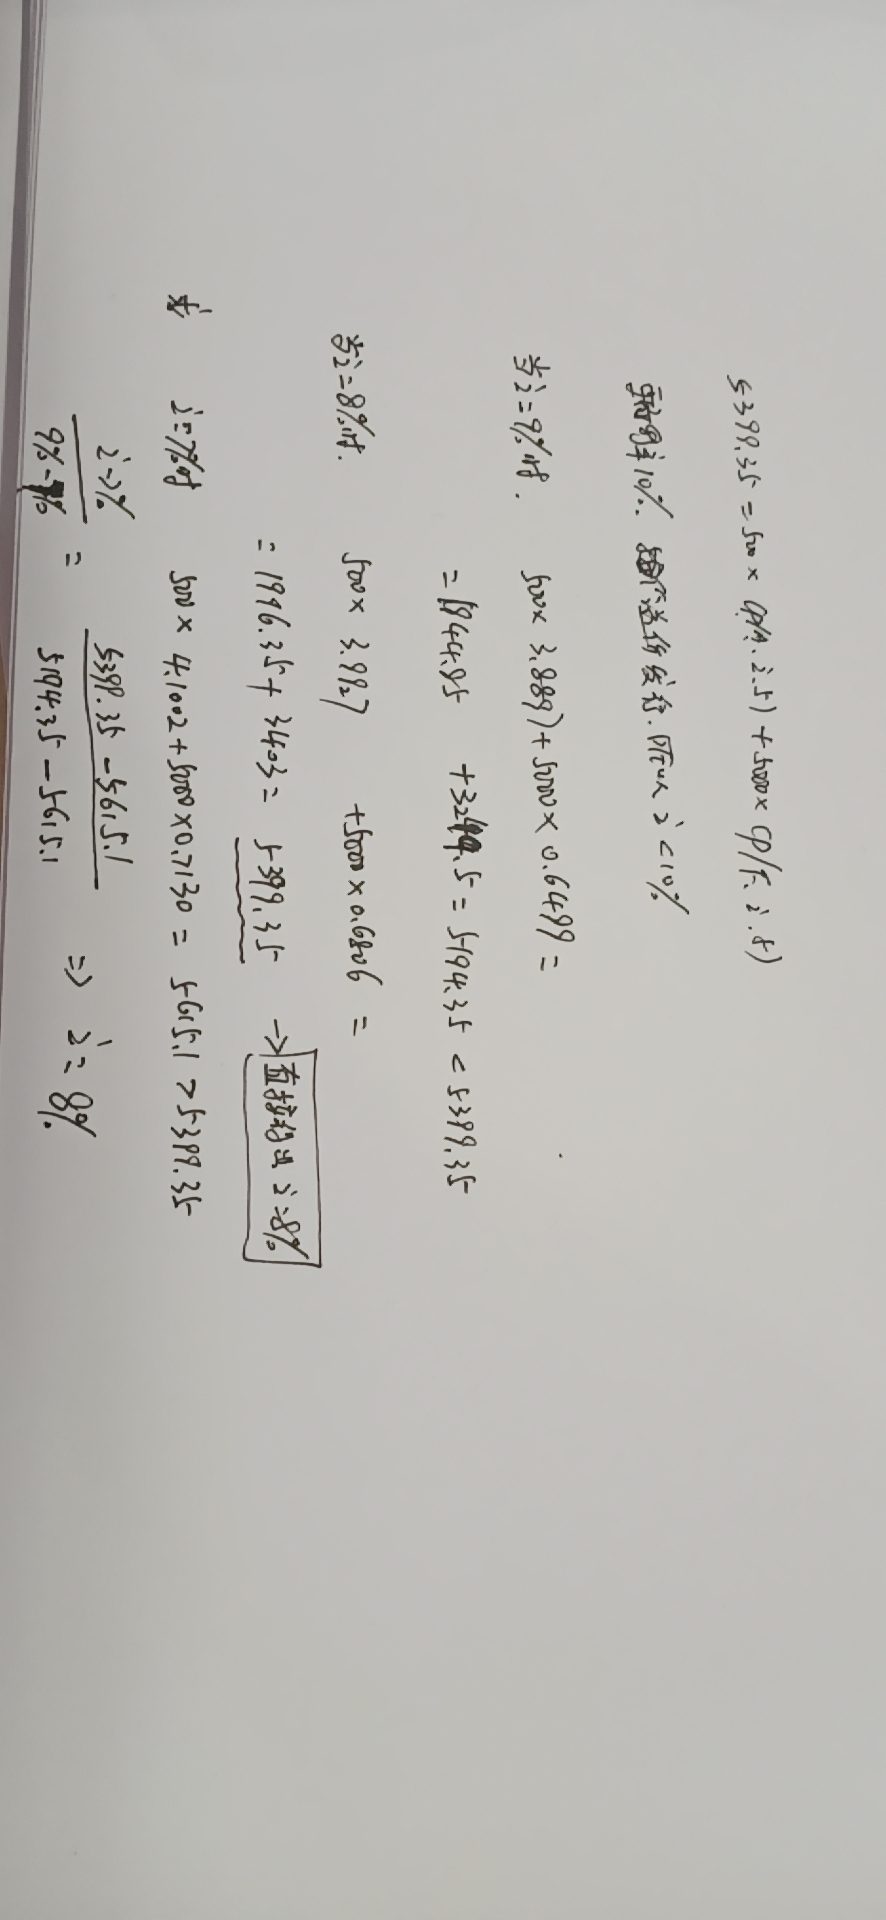 5399.35 = 500 × (P/A. i. 5) + 5000 × (P/F. i. 5)
票面利率10%. 溢价发行. 所以 i < 10%
当i=9%时. 500 × 3.8897 + 5000 × 0.6499 =
= 1944.85 + 3249.5 = 5194.35 < 5399.35
当i=8%时. 500 × 3.9927 + 5000 × 0.6806 =
= 1996.35 + 3403 = 5399.35 → 直接得出 i=8%
求 i=7%时 500 × 4.1002 + 5000 × 0.7130 = 5615.1 > 5399.35
i-7% / 9%-7% = 5399.35 - 5615.1 / 5194.35 - 5615.1 => i = 8%